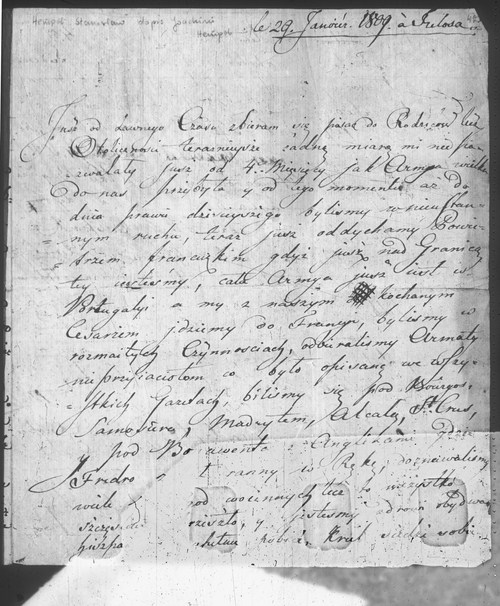 le 29. Janvier. 1809. à Tolosa
Już od dawnego Czasu zbieram się pisać do Rodziców lecz
Okoliczności teraznieysze żadną miarą mi nie po-
zwalały jusz od 4. Miesięcy jak Armya wielka
do nas przybyła y od tego momentu aż do
dnia prawie dzisieyszego byliśmy w nieustan-
nym ruchu, teraz jusz oddychamy Powie-
trzem francuzkim gdyż jusz nad Granicą
tey iesteśmy, cała Armya jusz iest w
Portugalyi a my z naszym kochanym
Cesarzem jdziemy do Francyi, byliśmy w
rozmaitych Czynnościach, odbieraliśmy Armaty
nieprzyiaciołom co było opisane we wszy-
stkich Gazetach, biliśmy się pod Bourgos,
Samosierą, Madrytem, Alcalą, St. Crus,
y pod Anglikami gdzie
Fredro ranny w Rękę, doznawaliśmy
wiele od wszystko
szczęśliwie y jesteśmy zdrowi obydwa
Król siedzi sobie